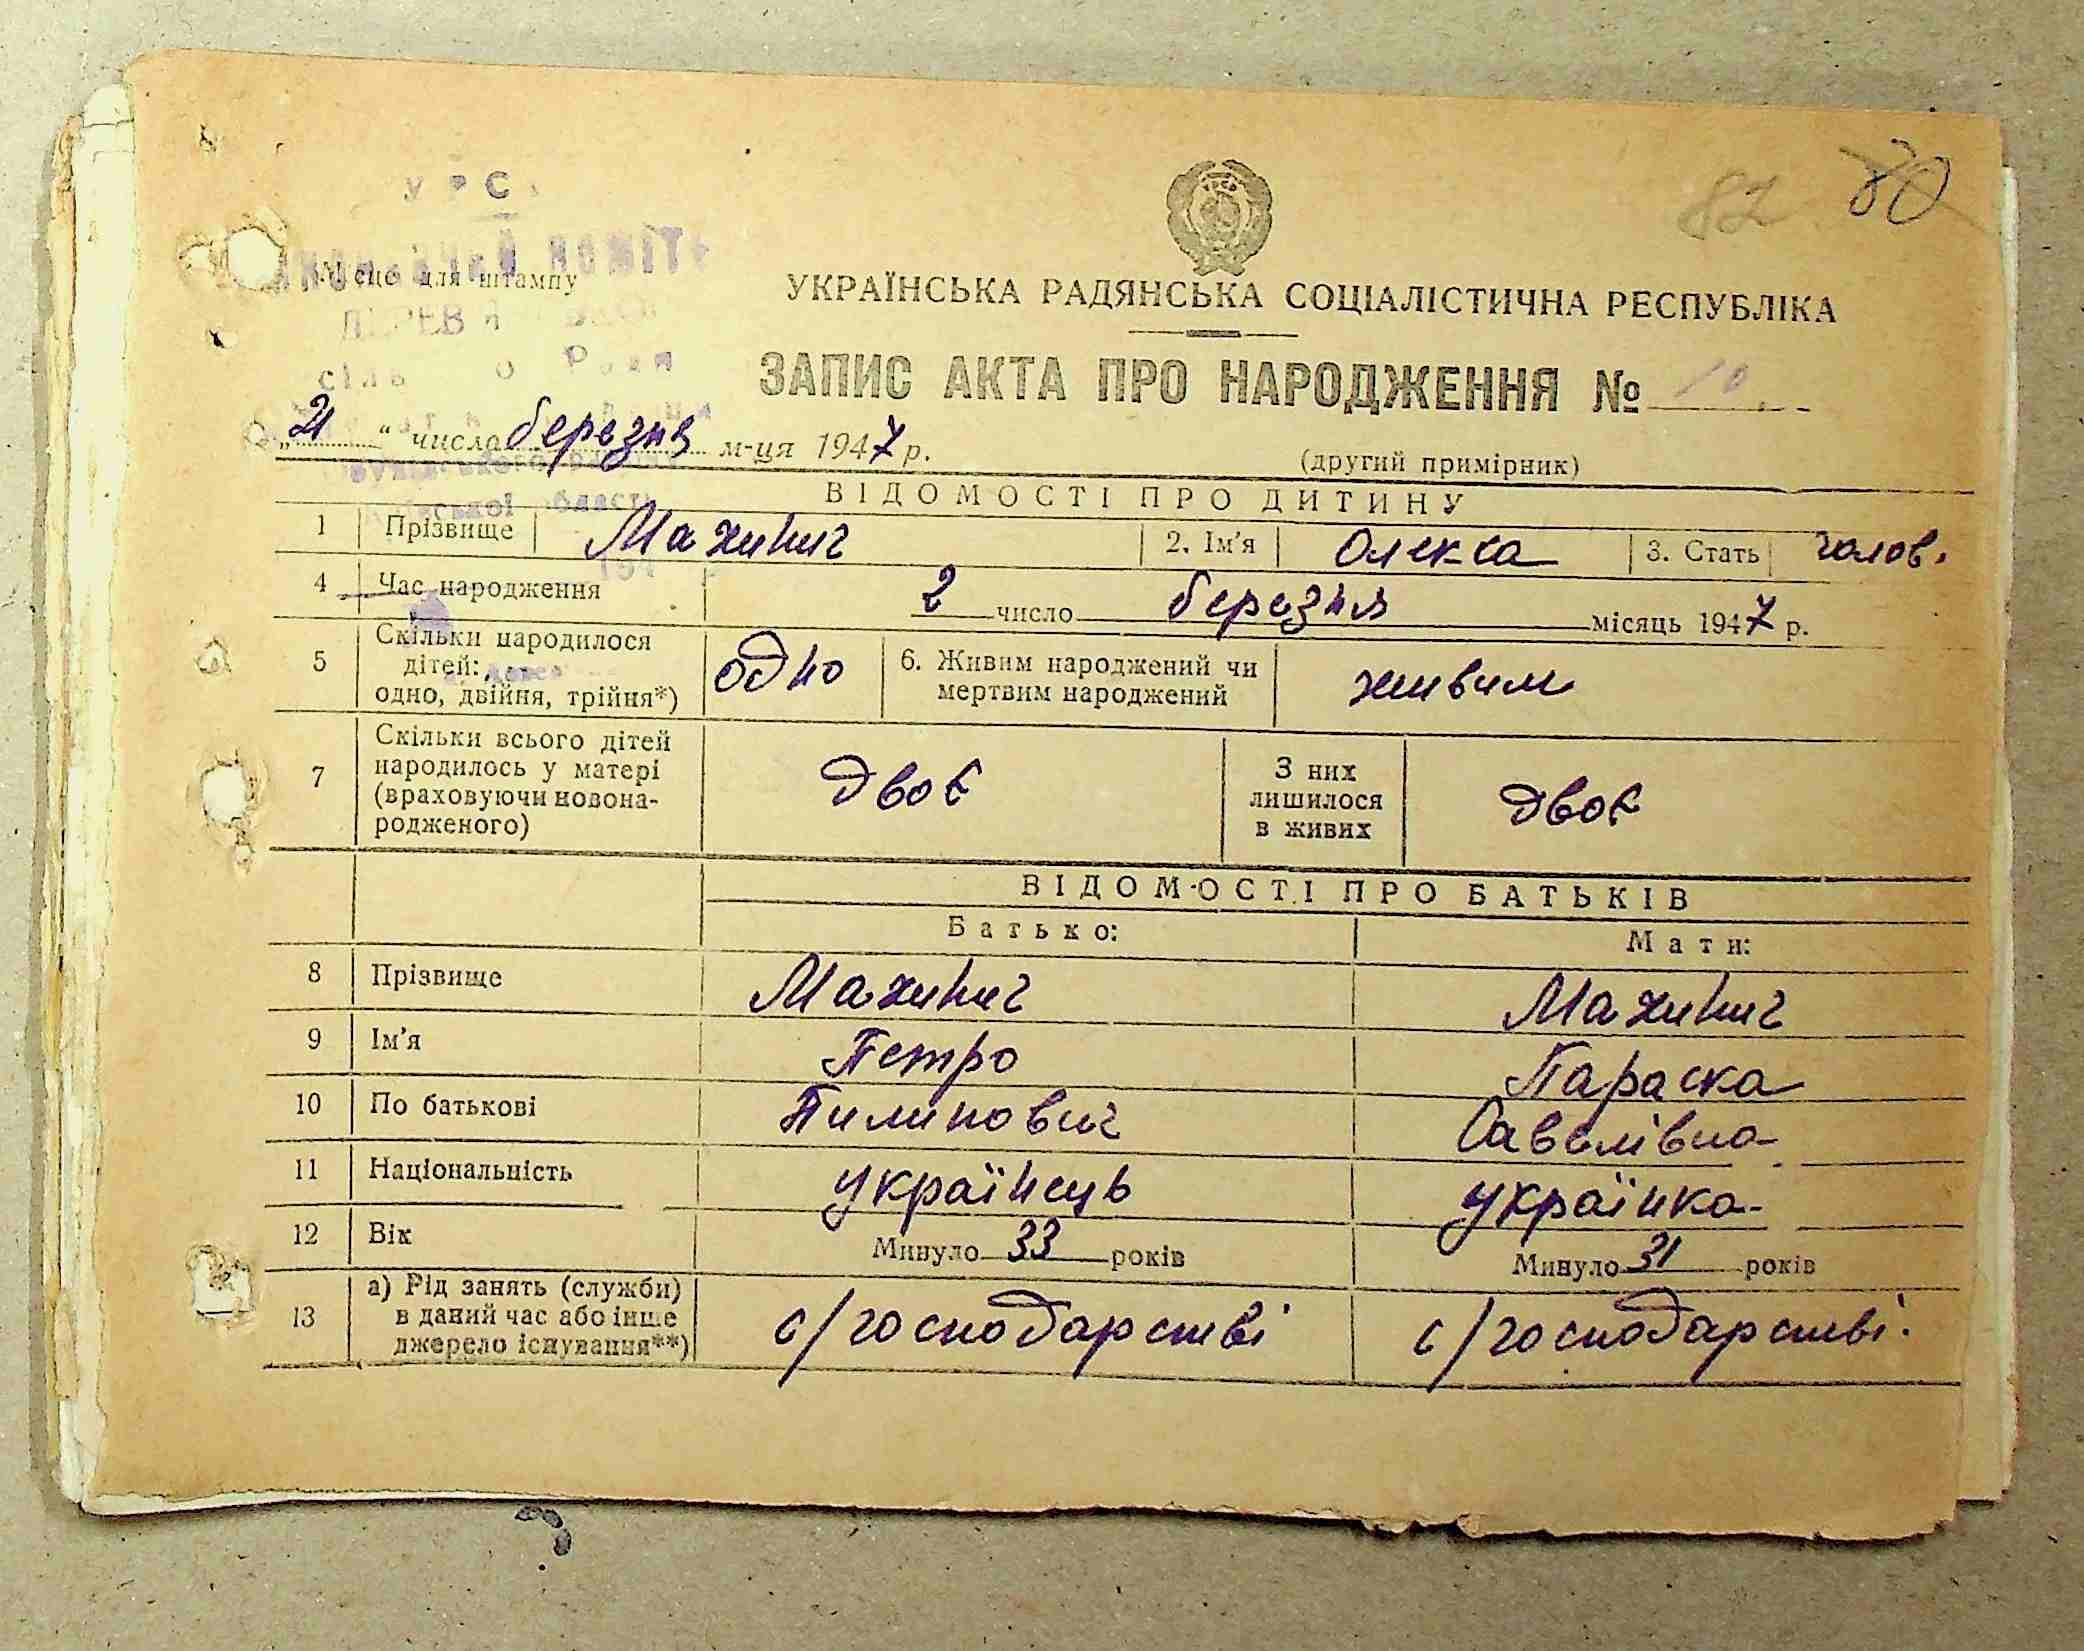 82 80
УКРАЇНСЬКА РАДЯНСЬКА СОЦІАЛІСТИЧНА РЕСПУБЛІКА
Місце для штампу
ЗАПИС АКТА ПРО НАРОДЖЕННЯ № 10
„21“ числа березня м-ця 1947 р.
(другий примірник)
ВІДОМОСТІ ПРО ДИТИНУ
1 Прізвище Махинич 2. Ім'я Олекса 3. Стать чолов.
4 Час народження 2 число березня місяць 1947 р.
5 Скільки народилося дітей: одно, двійня, трійня*) одно 6. Живим народжений чи мертвим народжений живим
7 Скільки всього дітей народилось у матері (враховуючи новонародженого) двоє З них лишилося в живих двоє
ВІДОМОСТІ ПРО БАТЬКІВ
Батько: Мати:
8 Прізвище Махинич Махинич
9 Ім'я Петро Параска
10 По батькові Пилипович Савелівна
11 Національність українець українка
12 Вік Минуло 33 років Минуло 31 років
13 а) Рід занять (служби) в даний час або інше джерело існування**) с/господарстві с/господарстві.